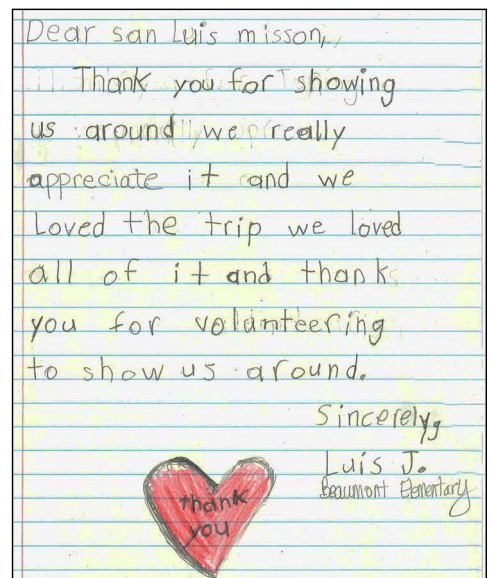 Dear san Luis misson,
Thank you for showing
us around we really
appreciate it and we
Loved the trip we loved
all of it and thank
you for volunteering
to show us around.
Sincerely,
Luis J.
Beaumont Elementary
thank
you